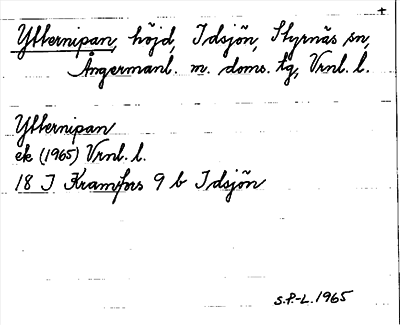 +
Ytternipan, höjd, Idsjön, Styrnäs sn,
Ångermanl. m. doms. tg, Vrnl. l.
Ytternipan
ek (1965) Vrnl. l.
18 J Kramfors 9 b Idsjön
S.P-L. 1965